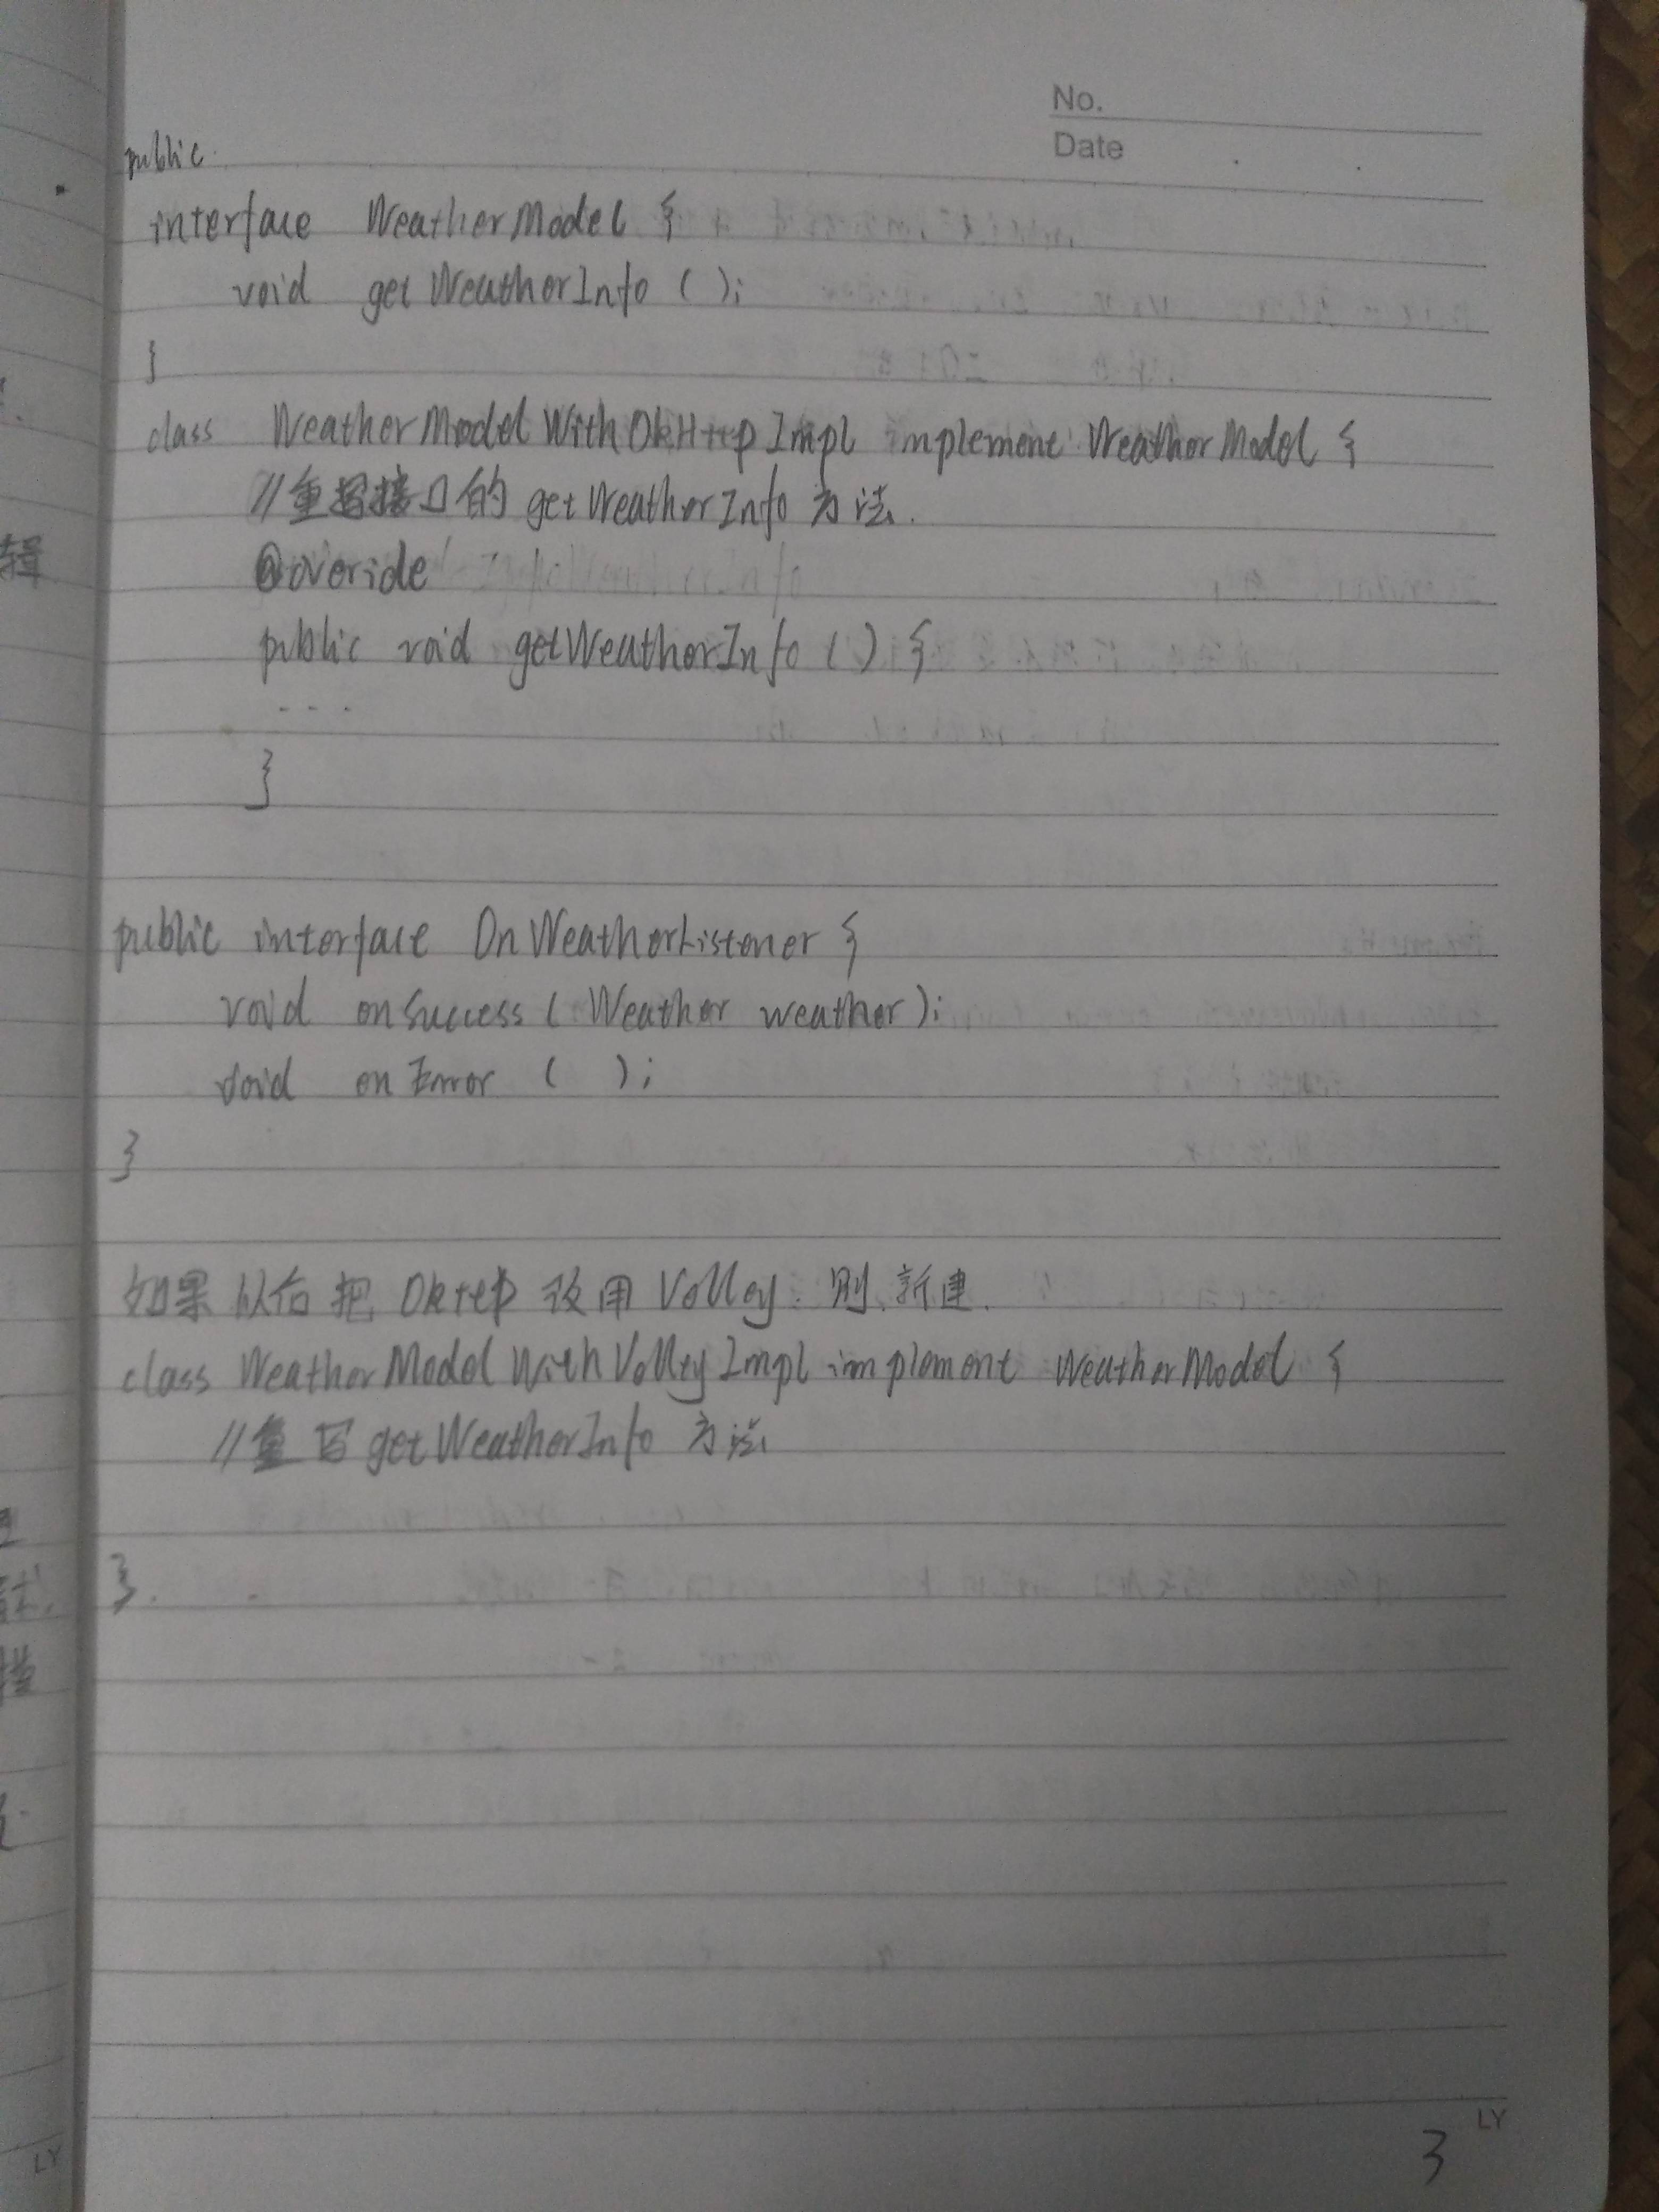 No.
Date
public
interface WeatherModel {
void getWeatherInfo ( );
}
class WeatherModelWithOkHttpImpl implement WeatherModel {
//重写接口的 getWeatherInfo 方法.
@overide
public void getWeatherInfo ( ) {
...
}
public interface OnWeatherListener {
void onSuccess ( Weather weather );
void onError ( );
}
如果以后把 Okttp 改用 Volley. 则新建.
class WeatherModelWithVolleyImpl implement WeatherModel {
//重写 getWeatherInfo 方法
}.
LY
3
辑
LY